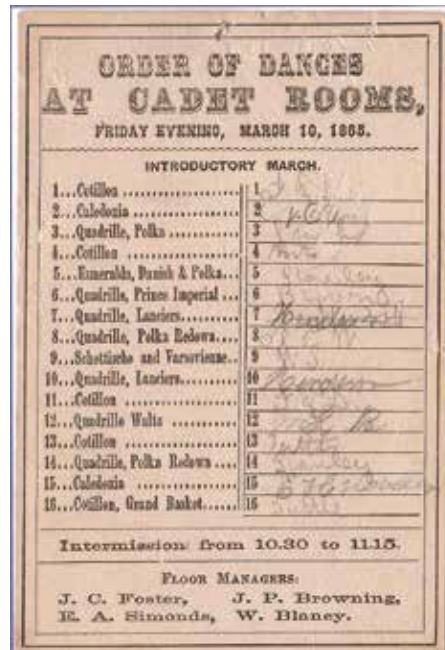 ORDER OF DANCES
AT CADET ROOMS,
FRIDAY EVENING, MARCH 10, 1865.
INTRODUCTORY MARCH.
1...Cotillon .................... 1
2...Caledonia ................... 2
3...Quadrille, Polka ............ 3
4...Cotillon .................... 4
5...Esmeralda, Danish & Polka... 5 Stanley
6...Quadrille, Prince Imperial ... 6
7...Quadrille, Lanciers.......... 7
8...Quadrille, Polka Redowa.... 8
9...Schottische and Varsovienne.. 9
10...Quadrille, Lanciers......... 10
11...Cotillon ................... 11
12...Quadrille Waltz ............ 12 B.
13...Cotillon ................... 13 Tuttle
14...Quadrille, Polka Redowa .... 14 Stanley
15...Caledonia .................. 15
16...Cotillon, Grand Basket...... 16 Tuttle
Intermission from 10.30 to 11.15.
FLOOR MANAGERS:
J. C. Foster, J. P. Browning,
E. A. Simonds, W. Blaney.